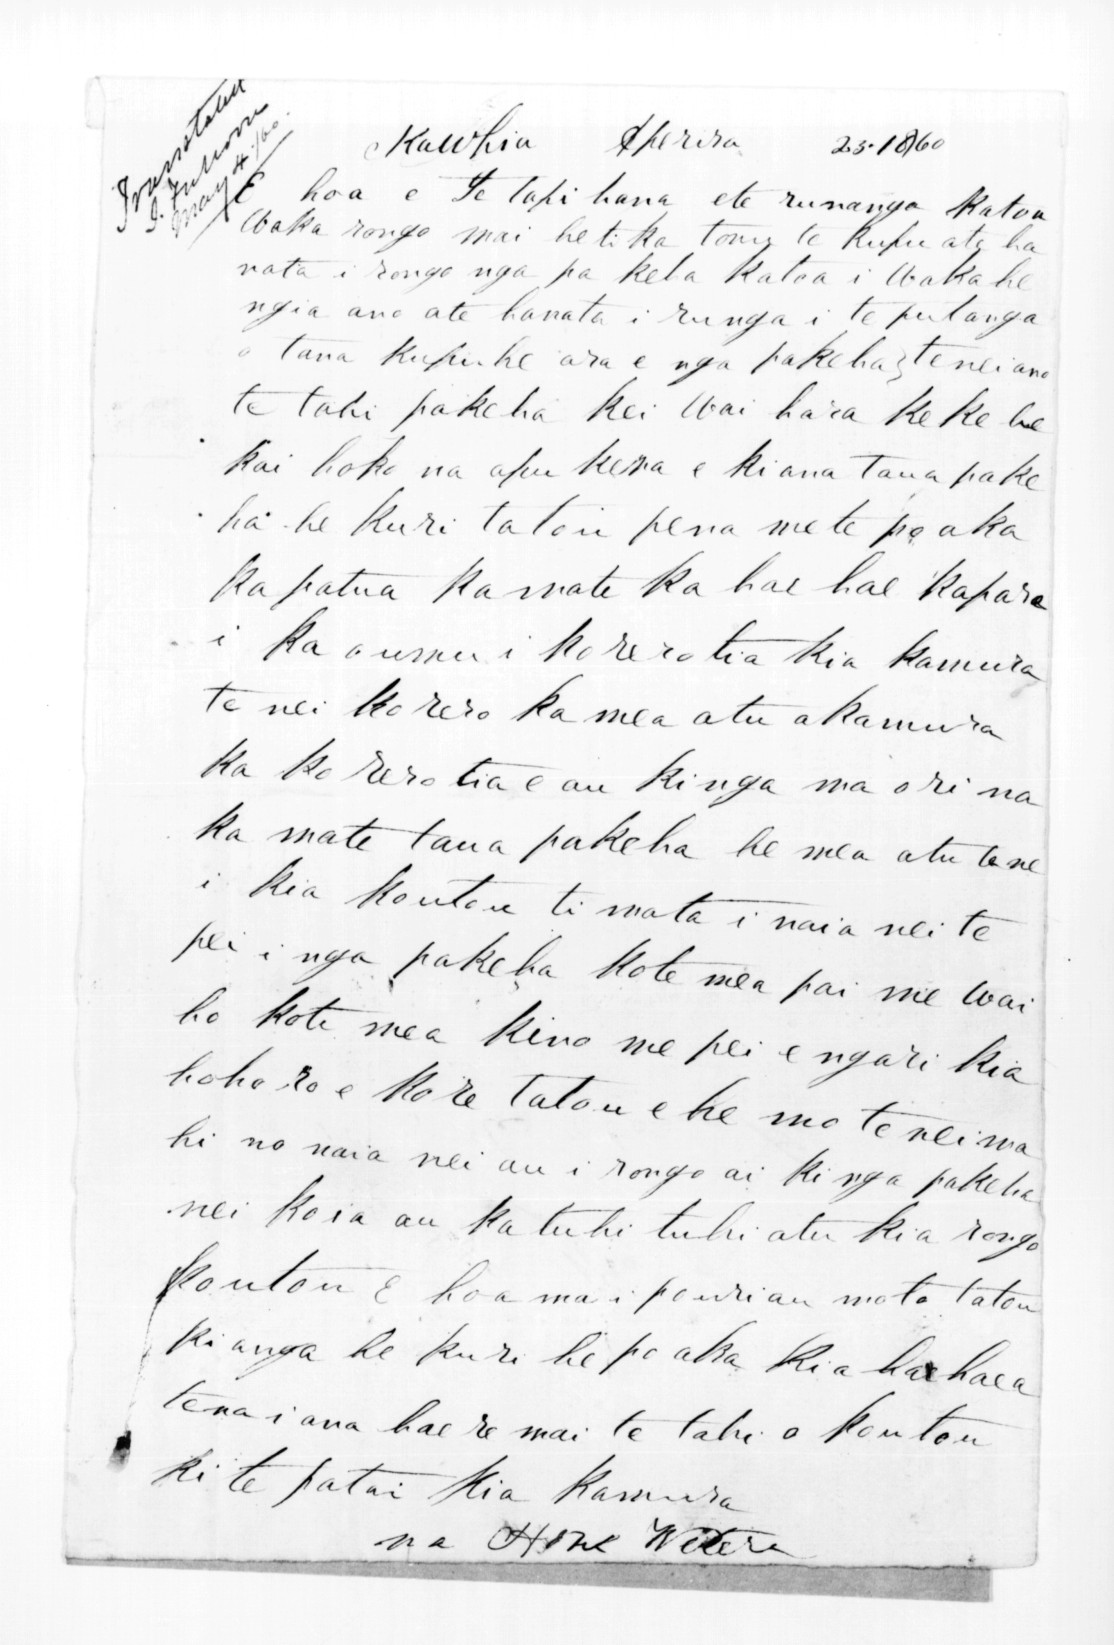 Translated
May 4/60.
Kawhia Aperira 23. 1860
E hoa e Te tapi hana ete runanga katoa
Waka rongo mai he ti ka tonu te kupu ate ha
nata i rongo nga pa keha katoa i Waka he
ngia ano ate hanata i runga i te putanga
o tana kupu he ara e nga pakeha, te nei ano
te tahi pakeha kei Wai hara ke ke he
kai hoko na apu kema e ki ana taua pake
ha he kuri tatou pena me te po aka
ka patua ka mate ka hae hae ka para
i ka oumu i ko rero tia kia kamura
te nei ko rero ka mea atu a kamura
ka ko rero tia e au ki nga ma o ri na
ka mate taua pakeha he mea atu te ne
i kia koutou ti mata i naia nei te
pei i nga pakeha kote mea pai me Wai
ho kote mea kino me pei e ngari kia
hoho ro e ko re tatou e he mo te nei ma
hi no naia nei au i rongo ai ki nga pakeha
nei ko ia au ka tuhi tuhi atu kia rongo
koutou E hoa ma i pouri au mo to tatou
ki anga he kuri he po aka kia hae haea
tena i ana hae re mai te tahi o koutou
ki te patai kia kamura
na Hone Wetere